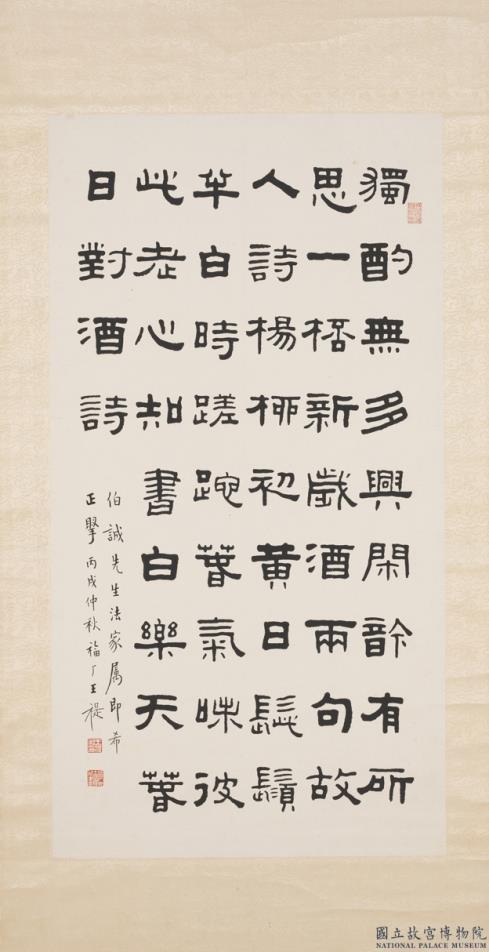 獨酌無多興閑䪩有所
思一桮新歲酒兩句故
人詩楊栁初黃日髭鬚
半白時蹉跎萅氣味彼
此老心知書白樂天萅
日對酒詩
伯誠先生法家属即希
正擥丙戌仲秋福厂王禔
國立故宮博物院
NATIONAL PALACE MUSEUM